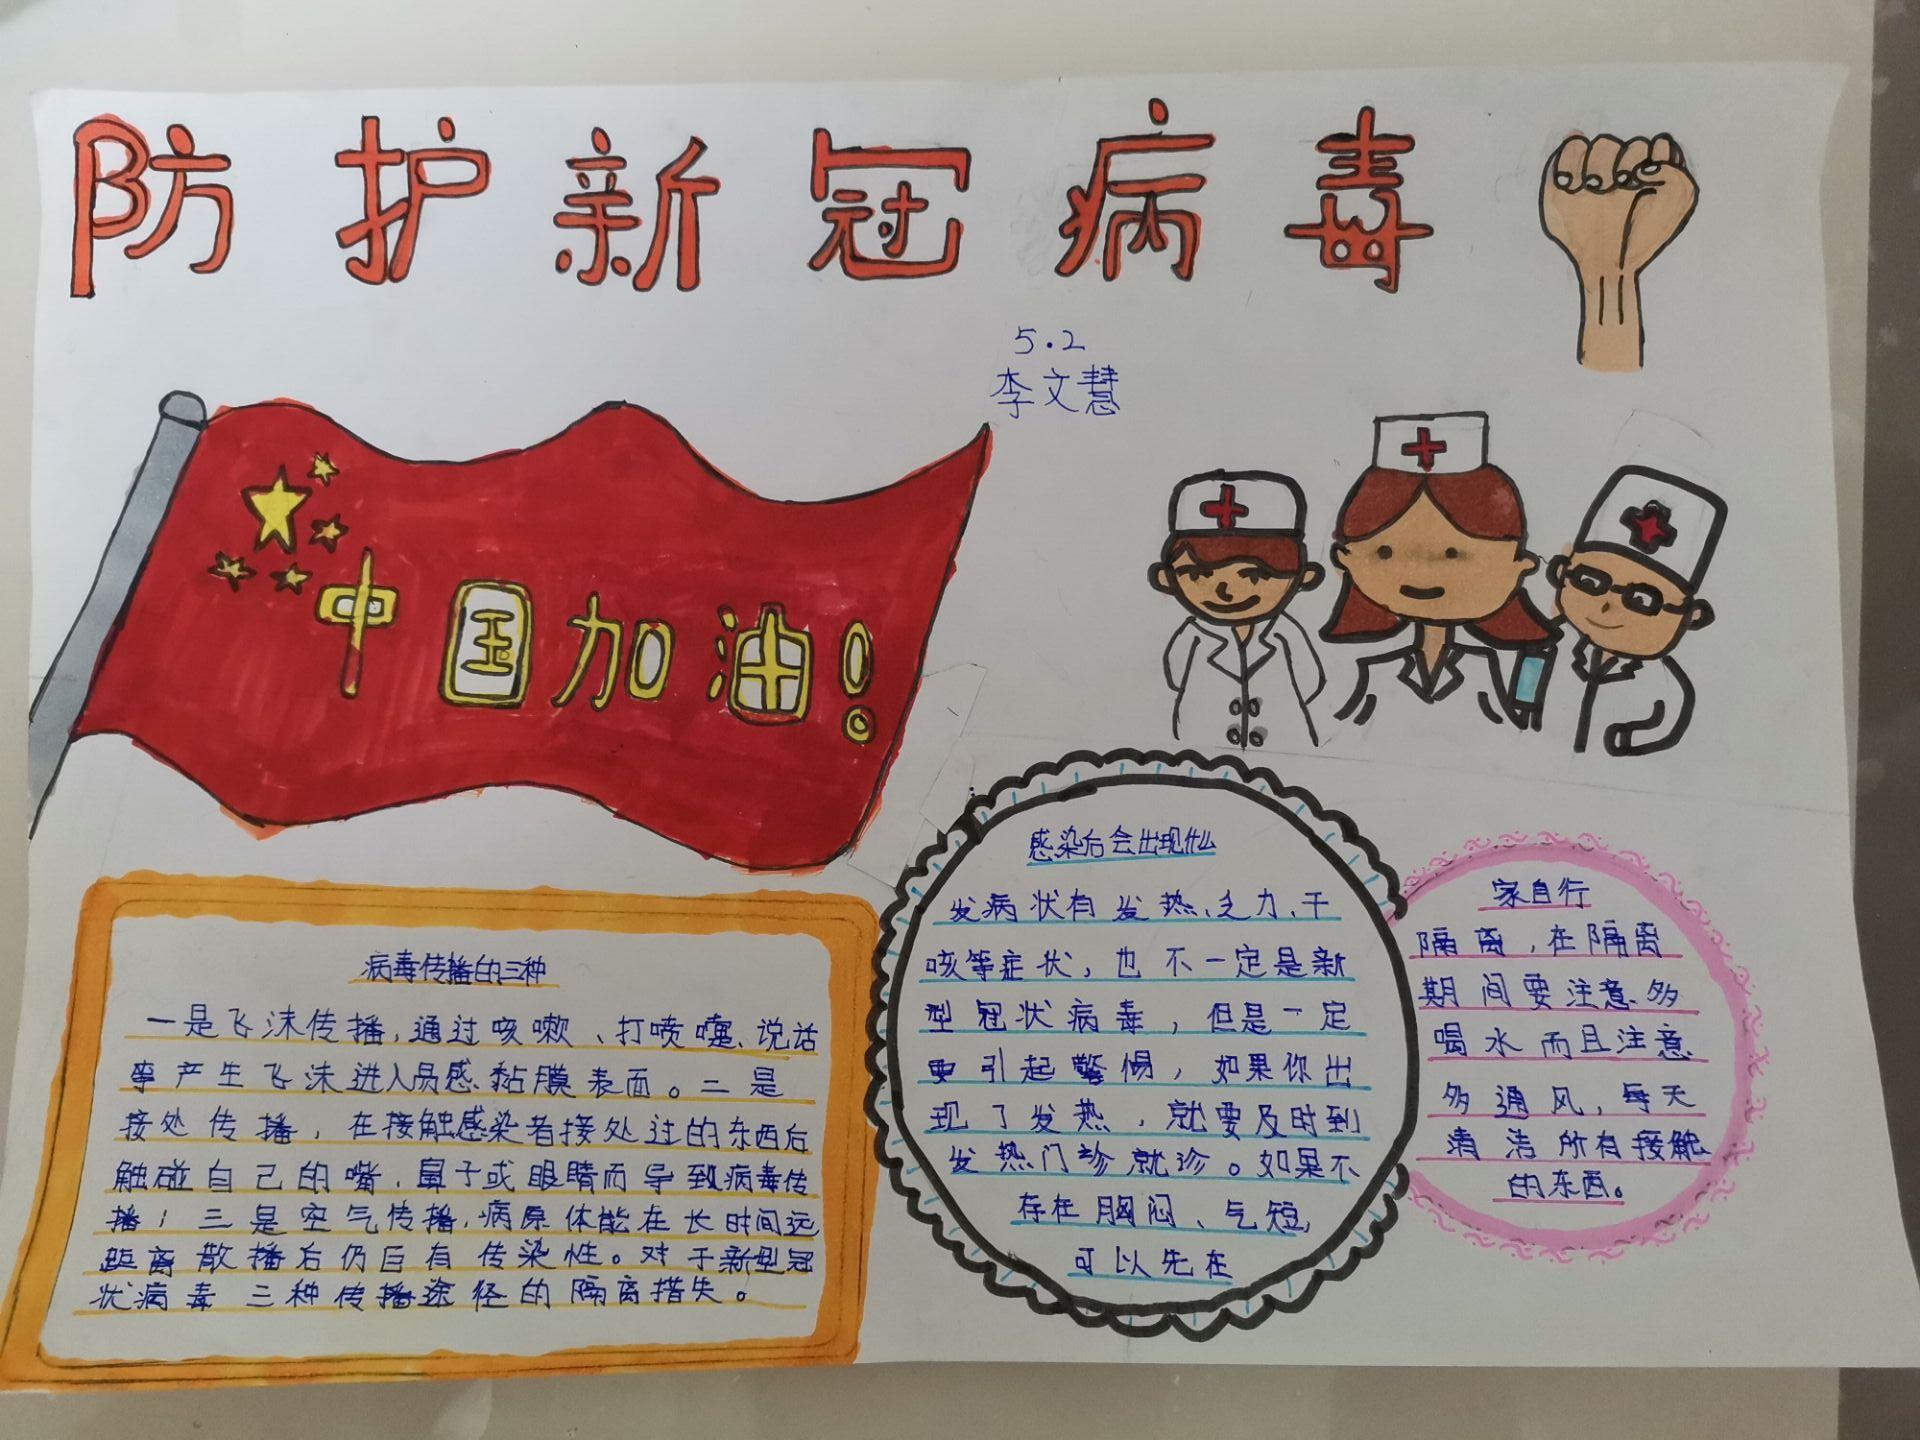 防护新冠病毒
5.2
李文慧
中国加油!
病毒传播的三种
一是飞沫传播,通过咳嗽、打喷嚏、说话
产生飞沫进入易感黏膜表面。二是
接处传播,在接触感染者接处过的东西后
触碰自己的嘴,鼻子或眼睛而导致病毒传
播;三是空气传播,病原体能在长时间远
距离散播后仍白有传染性。对于新型冠
状病毒三种传播途径的隔离措失。
感染后会出现什么
发病状有发热、乏力、干
咳等症状,也不一定是新
型冠状病毒,但是一定
要引起警惕,如果你出
现了发热,就要及时到
发热门诊就诊。如果不
存在胸闷、气短,
可以先在
家自行
隔离,在隔离
期间要注意多
喝水而且注意
多通风,每天
清洁所有接触
的东西。